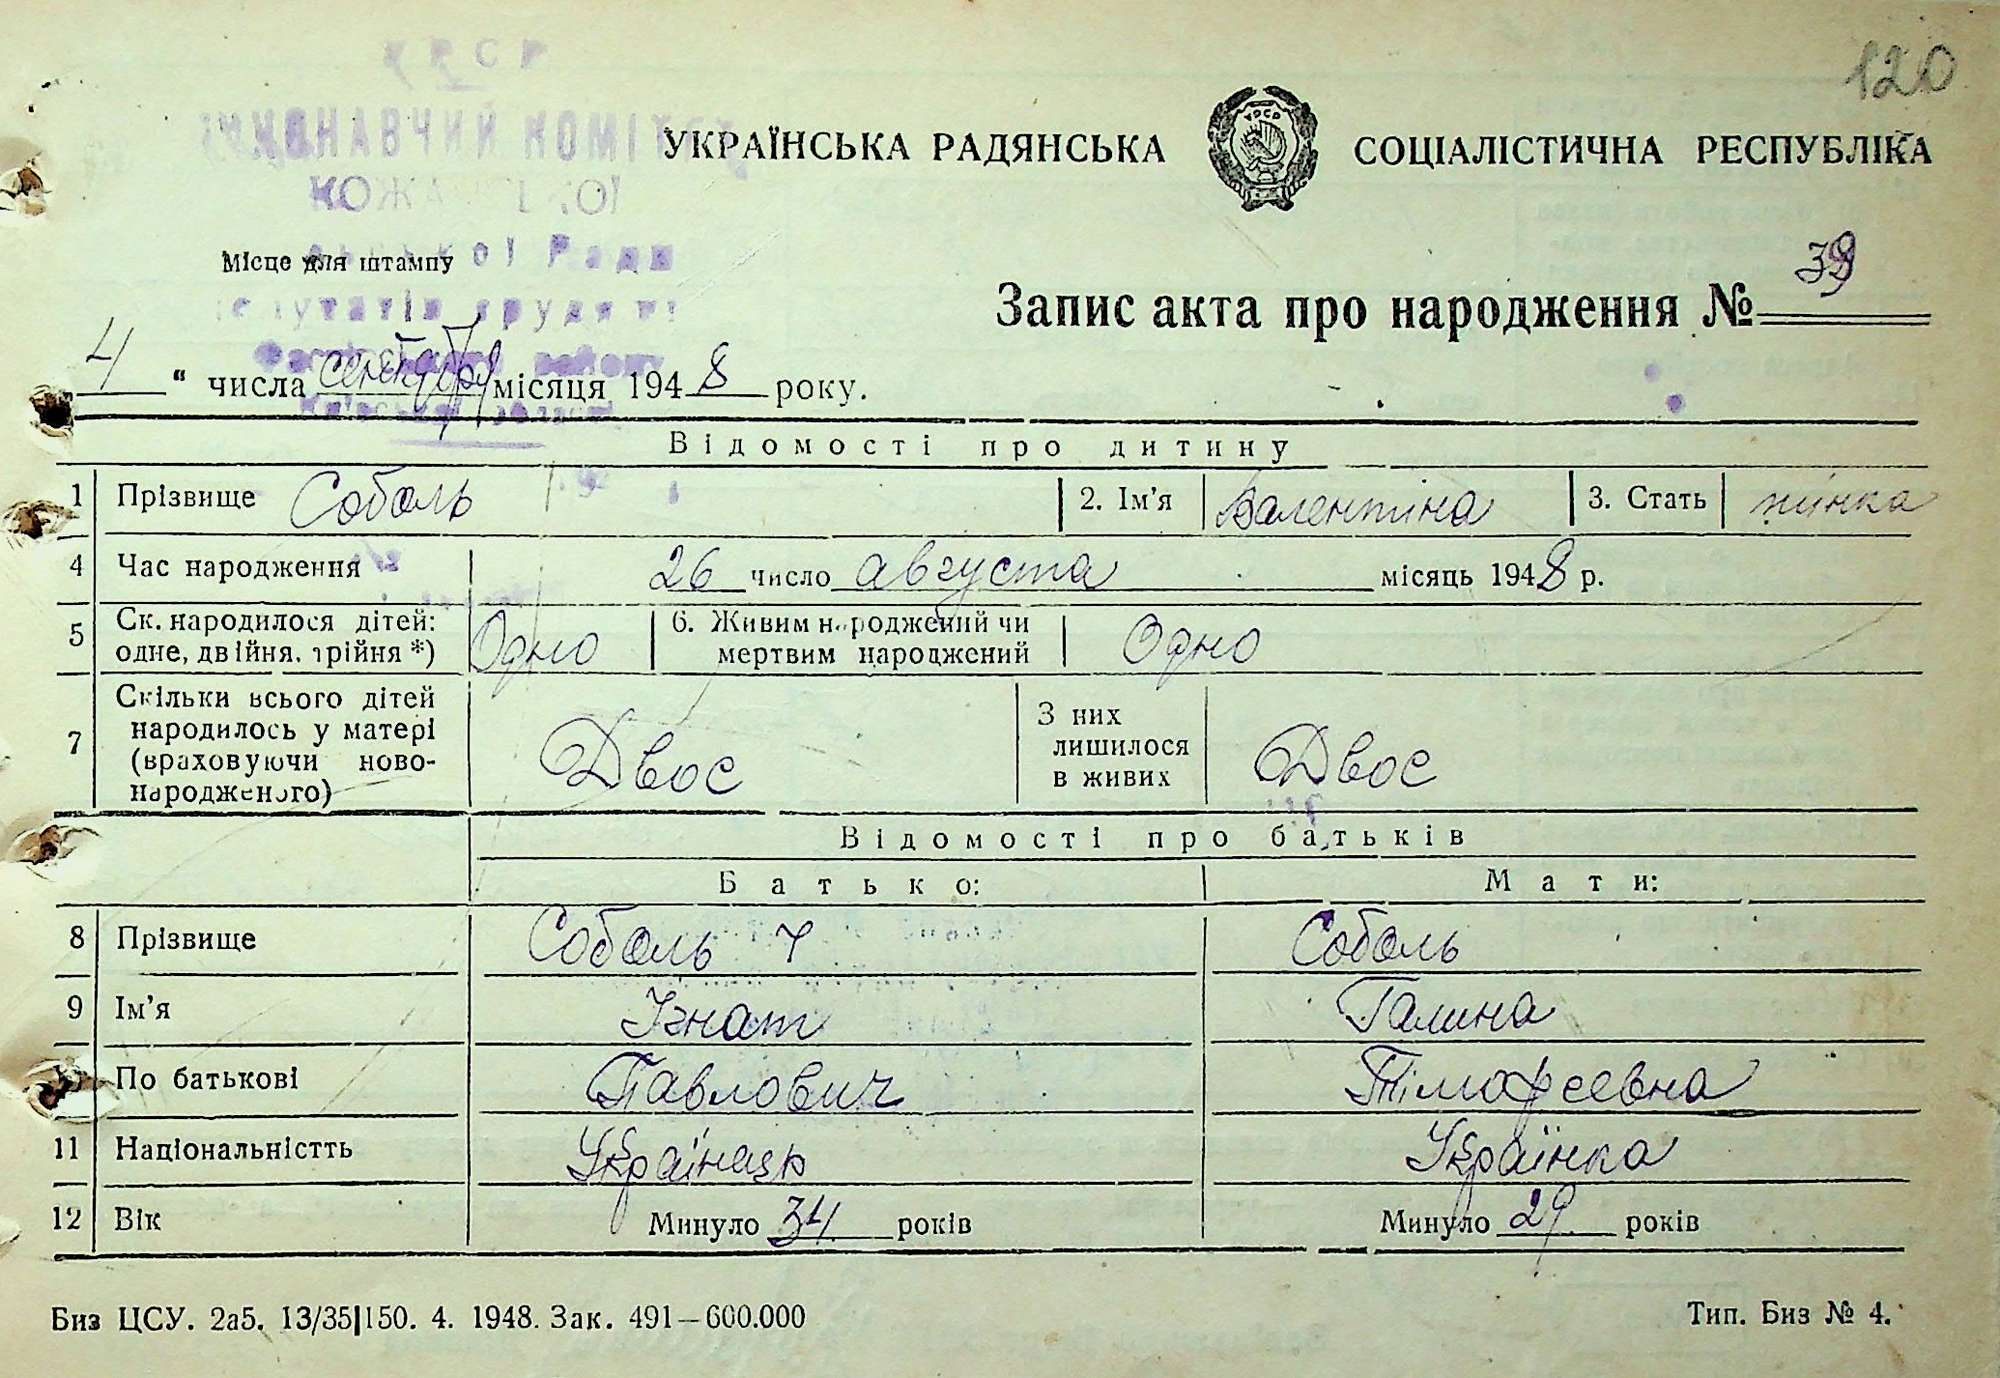 120
УРСР
ВИКОНАВЧИЙ КОМІТЕТ
УКРАЇНСЬКА РАДЯНСЬКА СОЦІАЛІСТИЧНА РЕСПУБЛІКА
Місце для штампу
Ради
Запис акта про народження № 39
4 " числа сентября місяця 1948 року.
Відомості про дитину
1 Прізвище Соболь 2. Ім'я Валентіна 3. Стать жінка
4 Час народження 26 число августа місяць 1948 р.
5 Ск. народилося дітей: одне, двійня, трійня *) Одно 6. Живим народжений чи мертвим народжений Одно
7 Скільки всього дітей народилось у матері (враховуючи ново-народженого) Двоє З них лишилося в живих Двоє
Відомості про батьків
Батько: Мати:
8 Прізвище Соболь Соболь
9 Ім'я Ігнат Галина
По батькові Павлович Тімофеевна
11 Національністть Українець Українка
12 Вік Минуло 34 років Минуло 29 років
Биз ЦСУ. 2а5. 13/35|150. 4. 1948. Зак. 491—600.000 Тип. Биз № 4.